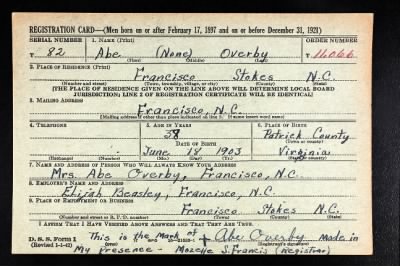 REGISTRATION CARD—(Men born on or after February 17, 1897 and on or before December 31, 1921)
SERIAL NUMBER 1. NAME (Print) ORDER NUMBER
T 82 Abe (None) Overby T 11066
(First) (Middle) (Last)
2. PLACE OF RESIDENCE (Print)
Francisco Stokes N.C.
(Number and street) (Town, township, village, or city) (County) (State)
[THE PLACE OF RESIDENCE GIVEN ON THE LINE ABOVE WILL DETERMINE LOCAL BOARD
JURISDICTION; LINE 2 OF REGISTRATION CERTIFICATE WILL BE IDENTICAL]
3. MAILING ADDRESS
Francisco, N.C.
[Mailing address if other than place indicated on line 2. If same insert word same]
4. TELEPHONE 5. AGE IN YEARS 6. PLACE OF BIRTH
38 Patrick County
DATE OF BIRTH (Town or county)
June 18 1903 Virginia
(Exchange) (Number) (Mo.) (Day) (Yr.) (State or country)
7. NAME AND ADDRESS OF PERSON WHO WILL ALWAYS KNOW YOUR ADDRESS
Mrs. Abe Overby, Francisco, N.C.
8. EMPLOYER'S NAME AND ADDRESS
Elijah Beasley, Francisco, N.C.
9. PLACE OF EMPLOYMENT OR BUSINESS
Francisco Stokes N.C.
(Number and street or R. F. D. number) (Town) (County) (State)
I AFFIRM THAT I HAVE VERIFIED ABOVE ANSWERS AND THAT THEY ARE TRUE.
D. S. S. Form 1 This is the Mark of + Abe Overby made in
(Revised 1-1-42) (Registrant's signature)
My Presence - Mozelle S. Francis (Registrar)